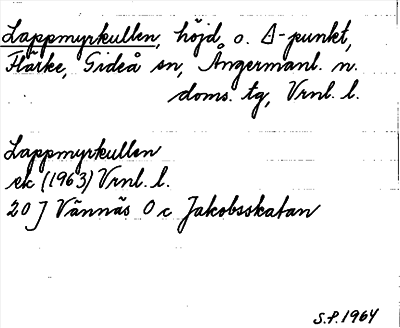 Lappmyrkullen, höjd o. Δ-punkt,
Flärke, Gideå sn, Ångermanl. n.
doms. tg, Vrnl. l.
Lappmyrkullen
ek (1963) Vrnl. l.
20 J Vännäs O c Jakobsskatan
S.P. 1964